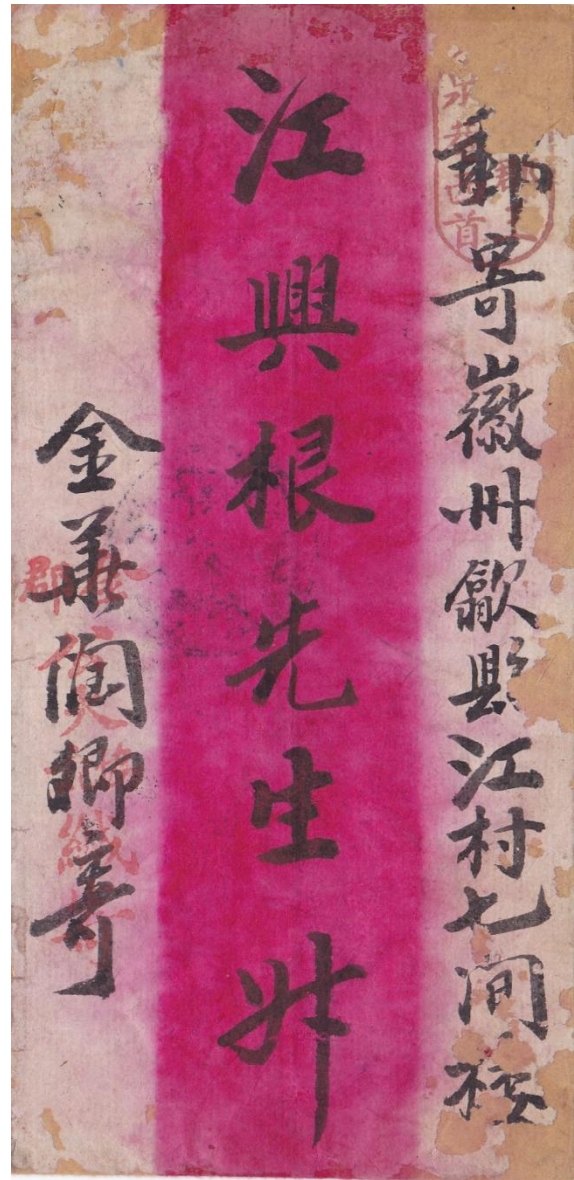 郵寄徽州歙縣江村七間樓
江興根先生升
金華潤卿寄